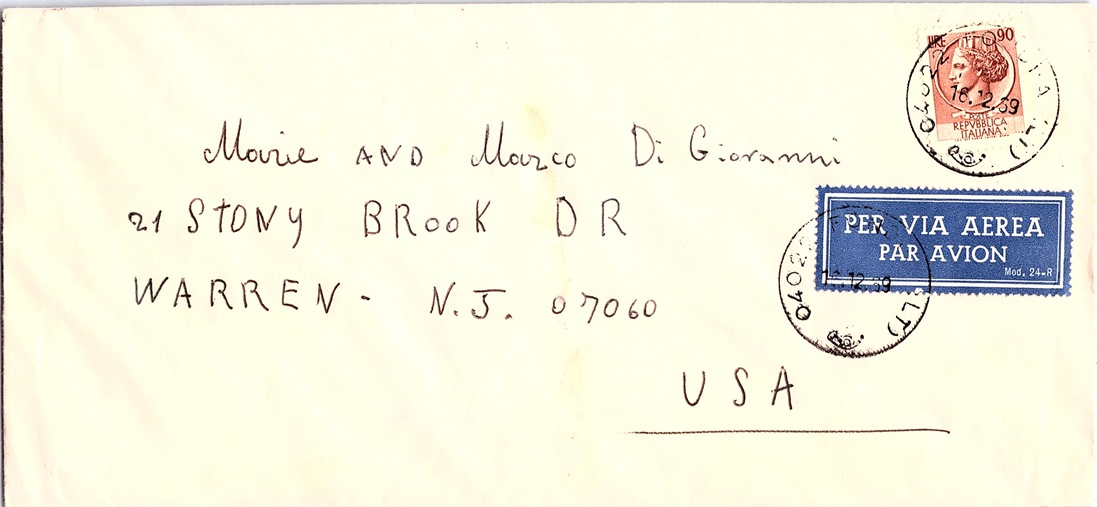 LIRE 90
POSTE
REPVBBLICA
ITALIANA
04022 (LT)
16.12.69
Marie AND Marco Di Giovanni
21 STONY BROOK DR
WARREN - N.J. 07060
USA
PER VIA AEREA
PAR AVION
Mod. 24-R
0402 LT)
16.12.69